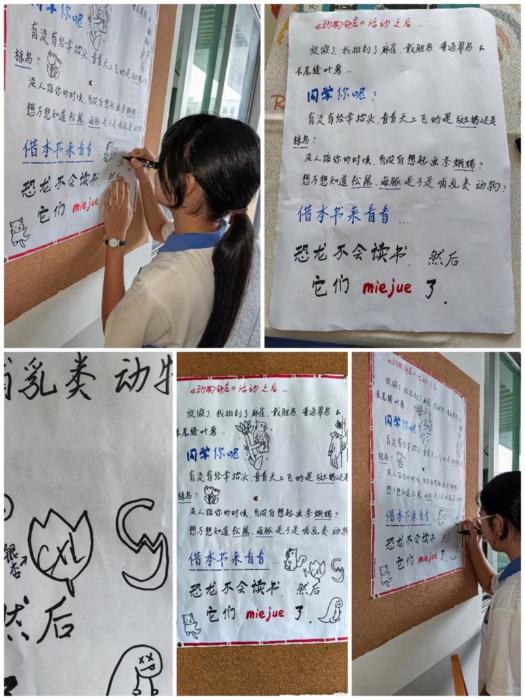 同学你呢?
有没有经常抬头,看看天上飞的是
没人陪你的时候,有没有想起
想不想知道松鼠、海豚是不是
借本书来看看
恐龙不会读书
它们 miejue
活动之后...
放假了,我拍到了麻雀、戴胜鸟、普通翠鸟 &
长尾缝叶莺.
同学你呢?
有没有经常抬头,看看天上飞的是 还是
椋鸟?
没人陪你的时候,有没有想起
想不想知道松鼠、海豚是不是哺乳类 动物?
借本书来看看...
恐龙不会读书. 然后
它们 miejue 了.
乳类 动物
CXL
然后
活动之后...
放假了,我拍到了麻雀、戴胜鸟、普通翠鸟 &
长尾缝叶莺.
同学你呢?
有没有经常抬头,看看天上飞的是
没人陪你的时候,有没有想起
想不想知道松鼠、海豚是不是哺乳类 动物
借本书来看看...
恐龙不会读书. 然后
它们 miejue 了.
活动之后...
同学你呢?
借本书来看看
恐龙不会读书
它们 miejue